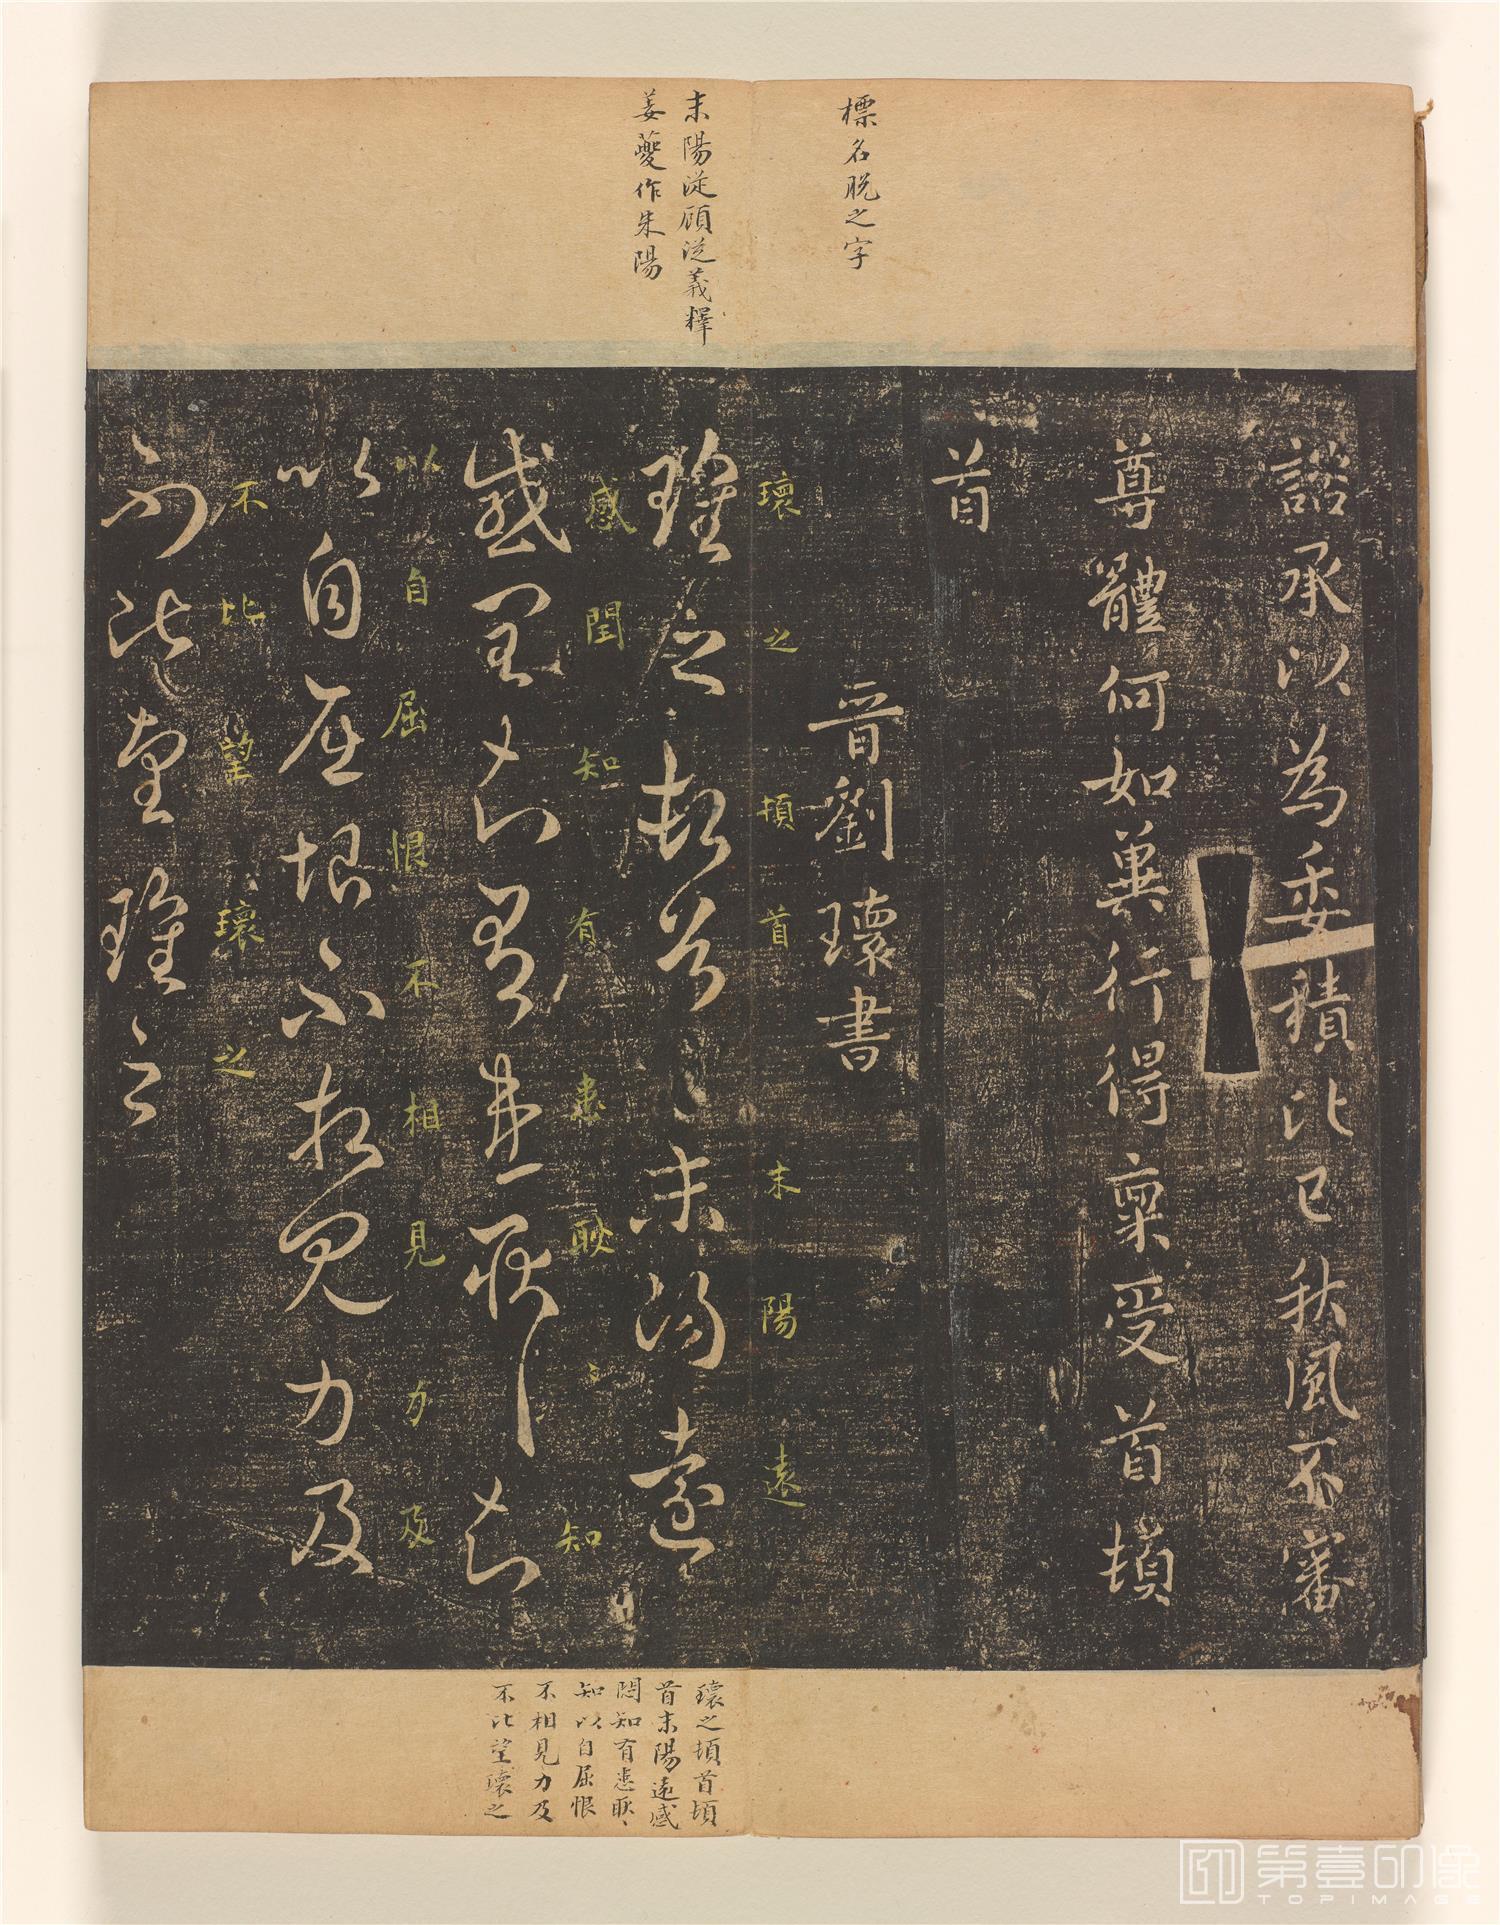 標名脫之字
末陽從顧從義釋
姜夔作朱陽
諮承以為委積比已秋風不審
尊體何如冀行得稟受首頓
首
晉劉瓌書
瓌之頓首頓首末陽遠
瓌之頓首末陽遠
感閏知有患耿耿知
感閏知有患耿〻知
以自屈恨不相見力及
以自屈恨不相見力及
不比望瓌之
不比望瓌之
瓌之頓首頓
首末陽遠感
閏知有患耿〻
知以自屈恨
不相見力及
不比望瓌之
第壹印像
TOPIMAGE